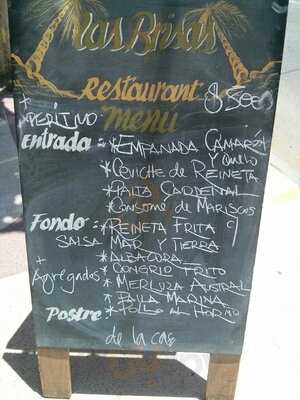 Las Brisas
Restaurant $8.500
Menu
+ APERITIVO
Entrada = *EMPANADA CAMARÓN Y QUESO
*CEVICHE de REINETA
*PALTA CARDENAL
*CONSOME de MARISCOS
Fondo = *REINETA FRITA
SALSA MAR Y TIERRA
*ALBACORA
+ Agregados *CONGRIO FRITO
*MERLUZA AUSTRAL
*PAILA MARINA
Postre *POLLO AL HORNO
de la casa